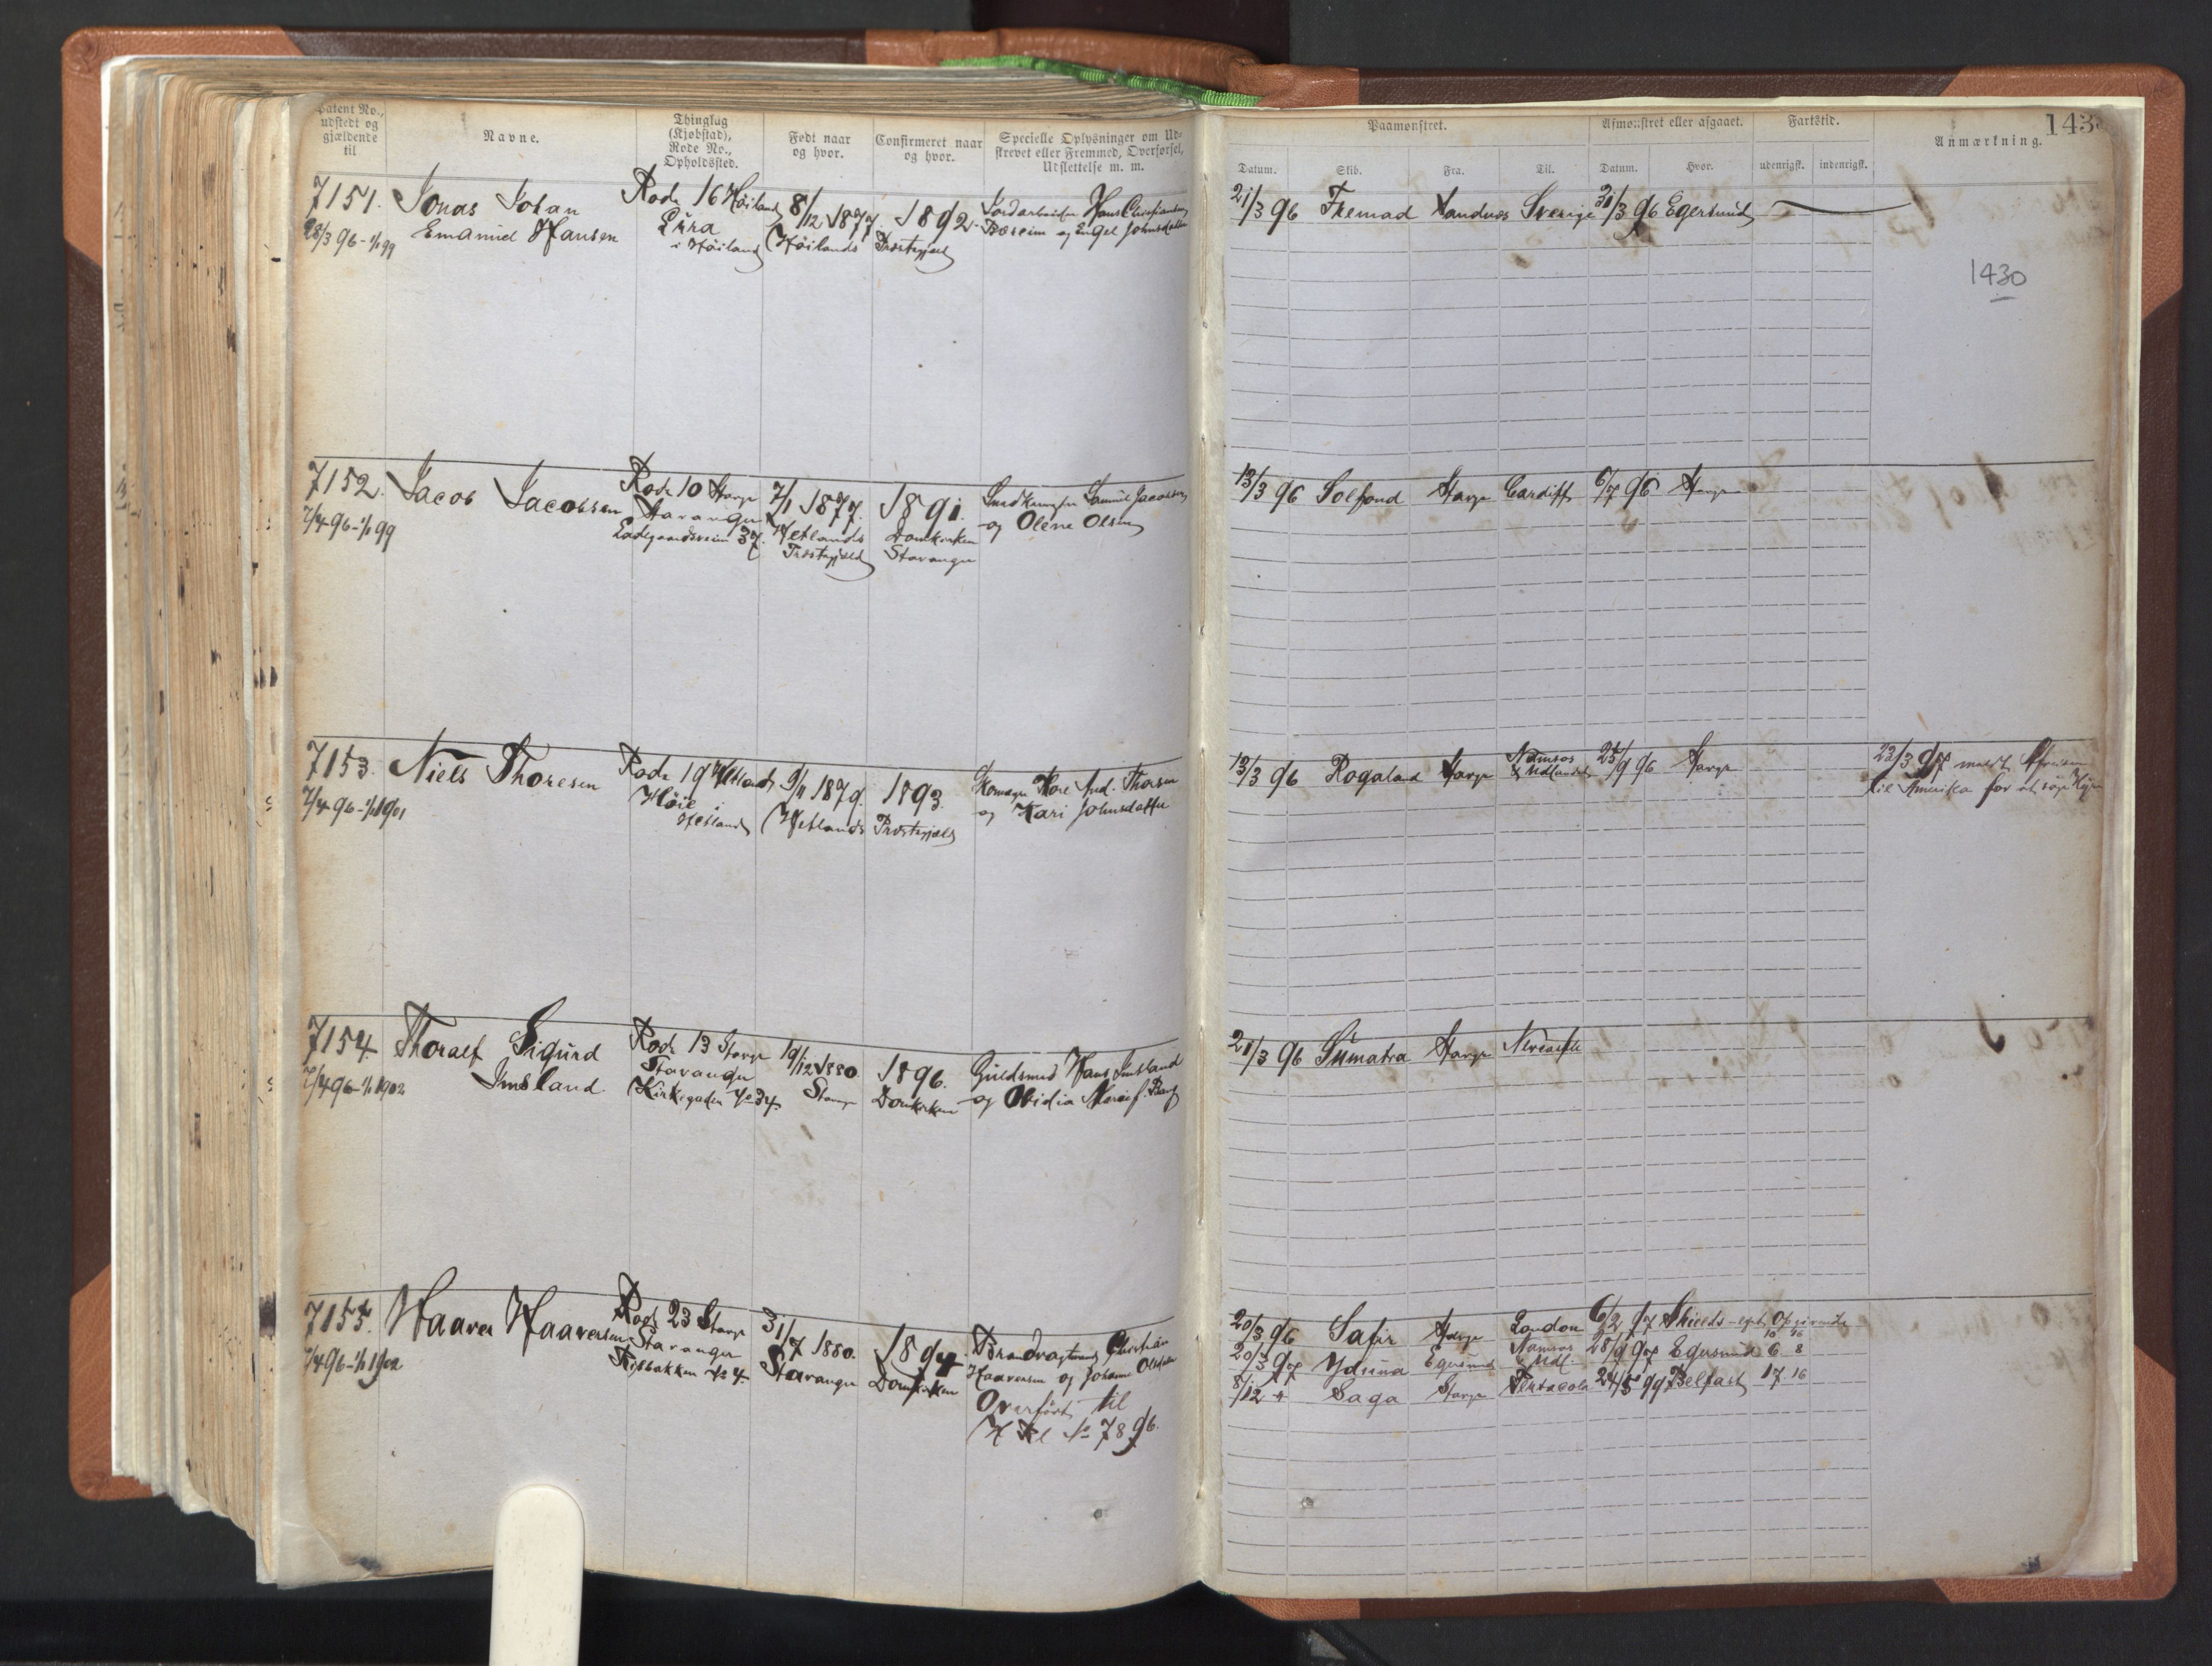 Patent No., udstedt og gjældende til
Navne.
Thinglag (Kjøbstad), Rode No., Opholdssted.
Født naar og hvor.
Confirmeret naar og hvor.
Specielle Oplysninger om Udskrevet eller Fremmed, Overførsel, Udslettelse m. m.
Paamønstret.
Afmønstret eller afgaaet.
Fartstid.
Anmærkning.
143
Datum.
Skib.
Fra.
Til.
Datum.
Hvor.
udenrigsk.
indenrigsk.
7151. Jonas Johan Rode 16 Høiland 8/12 1877 1892 Hans Christiansen
28/3 96 - 1/1 99 Emanuel Hansen Lura og Engel Johnsdatter
i Høiland (Høilands Præstegjæld)
21/3 96 Fremad Sandnæs Sverige 31/3 96 Egersund
1430
7152. Jacob Jacobsen Rode 10 Stavgr 7/1 1877. 1891. Samuel Jacobsen
7/4 96 - 1/1 99 Stavanger Hetlands Domkirken og Olene Olsen
Ladegaardsveien 37. Præstegjæld Stavanger
13/3 96 Solfond Stavgr Cardiff 6/7 96 Stavgr
7153. Niels Thoresen Rode 19 Hetland 9/11 1879. 1893. Tore And. Thorsen
7/4 96 - 1/1 1901 Høie i og Kari Johnsdatter
Hetland (Hetlands Præstegjæld)
13/3 96 Rogaland Stavgr Namsos & Udlandet 25/9 96 Stavgr
23/3 97 meldt Afreisen
til Amerika for at søge Hyre
7154 Thoralf Sigurd Rode 13 Stavgr 19/12 1880. 1896. Guldsmed Hans Imsland
7/4 96 - 1/1 1902 Imsland. Stavanger Stavgr Domkirken og Obidia
Kirkegaden No 34
21/3 96 Sumatra Stavgr Newcastle
7155. Haaver Haaversen Rode 23 Stavgr 31/7 1880. 1894 Christian
7/4 96 - 1/1 1902 Stavanger Stavanger Domkirken Haaversen og Johanne
No 4
Overført til
H Rl No 7896.
20/3 96 Safir Stavgr London 6/2 97 Shields
20/3 97 Yduna Egersund Namsos & Udl. 28/9 97 Egersund 6 8
8/12 " Saga Stavgr Pensacola 24/5 99 Belfast 17 16